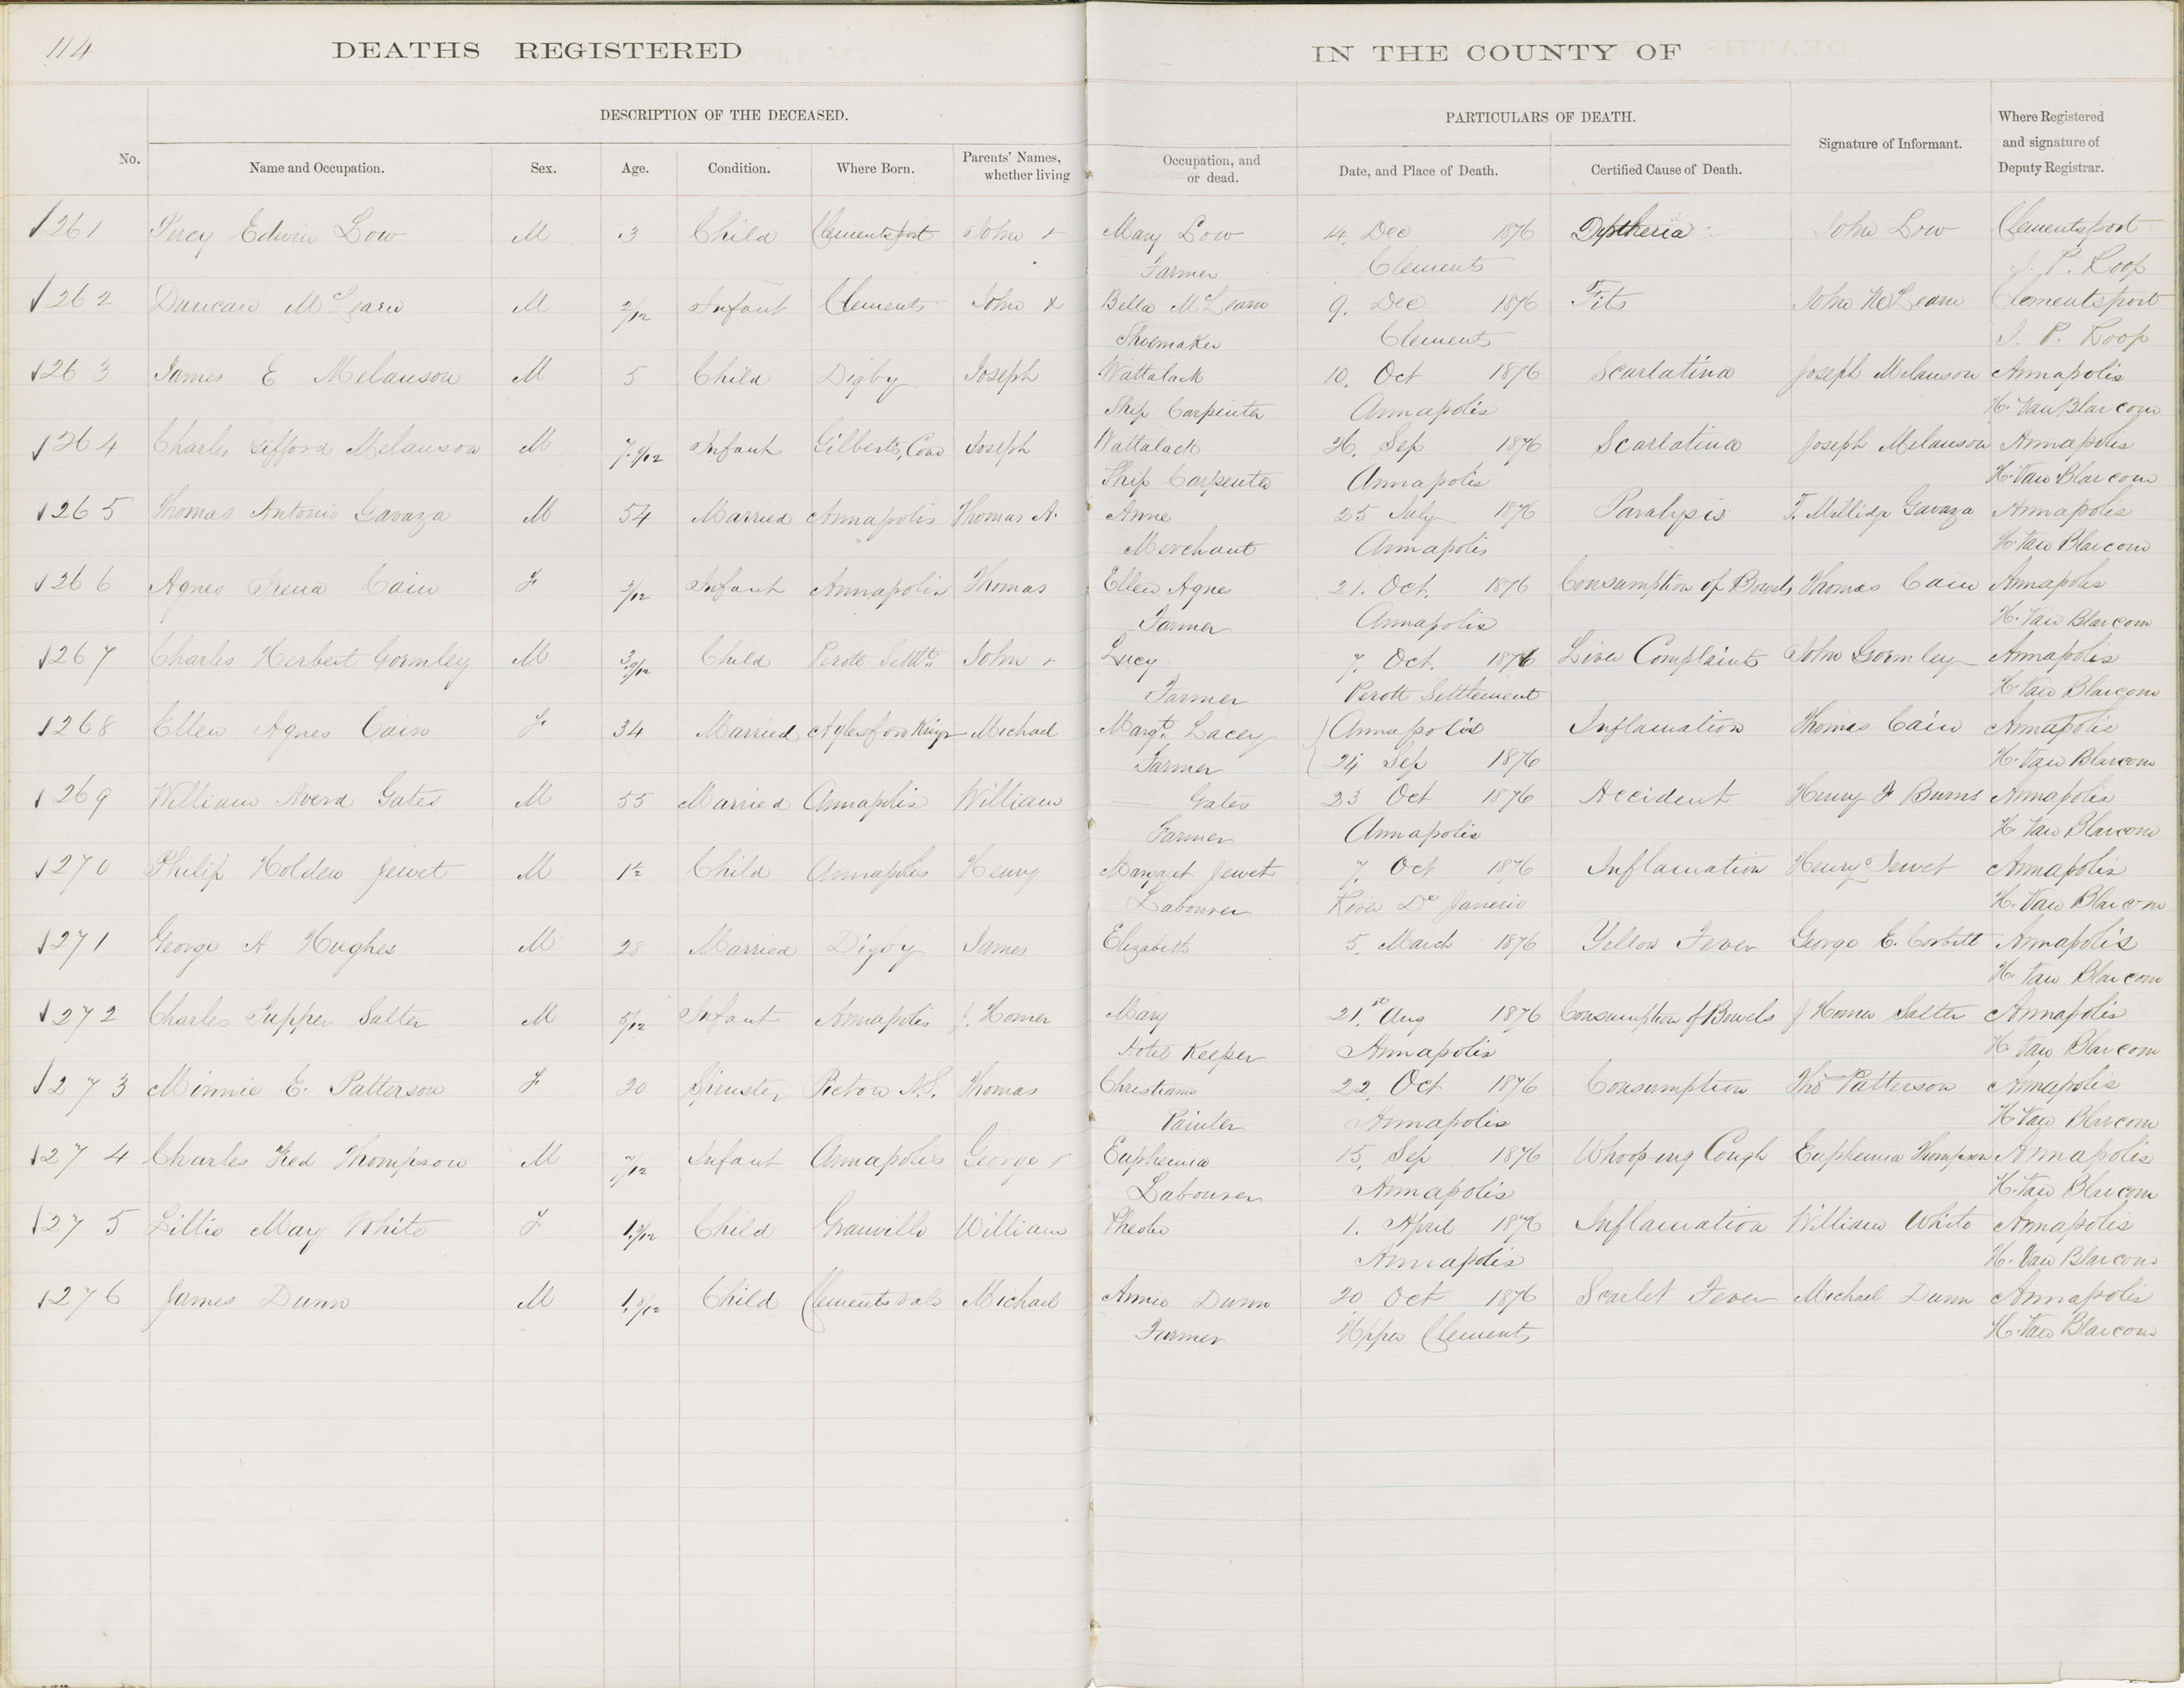 114
DEATHS REGISTERED IN THE COUNTY OF
DESCRIPTION OF THE DECEASED. PARTICULARS OF DEATH.
No. Name and Occupation. Sex. Age. Condition. Where Born. Parents' Names, whether living Occupation, and or dead. Date, and Place of Death. Certified Cause of Death. Signature of Informant. Where Registered and signature of Deputy Registrar.
1261 Percy Edwin Low M 3 Child Clementsport John + Mary Low 14. Dec 1876 Diptheria John Low Clementsport
Farmer Clements J. P. Roop
1262 Duncan McLearn M 2/12 Infant Clements John & Bella McLearn 9. Dec 1876 Fits John McLearn Clementsport
Shoemaker Clements J. P. Roop
1263 James E Melanson M 5 Child Digby Joseph Wattalack 10. Oct 1876 Scarlatina Joseph Melanson Annapolis
Ship Carpenter Annapolis H. Van Blarcom
1264 Charles Gifford Melanson M Infant Gilberts Cove Joseph Wattalack 26. Sep 1876 Scarlatina Joseph Melanson Annapolis
Ship Carpenter Annapolis H. Van Blarcom
1265 Thomas Antonio Gavaza M 54 Married Annapolis Thomas A. Anne 25 July 1876 Paralysis T. Millidge Gavaza Annapolis
Merchant Annapolis H. Van Blarcom
1266 Agnes Cain F 3/12 Infant Annapolis Thomas Ellen Agnes 21. Oct. 1876 Consumption of Bowels Thomas Cain Annapolis
Farmer Annapolis H. Van Blarcom
1267 Charles Herbert Gormley M Child Perott Settlt. John + Lucy 7. Oct. 1876 Liver Complaint John Gormley Annapolis
Farmer Perott Settlement H. Van Blarcom
1268 Ellen Agnes Cain F. 34 Married Aylesford Kings Michael Margt. Lacey Annapolis Inflamation Thomas Cain Annapolis
Farmer 24 Sep 1876 H. Van Blarcom
1269 William Averd Gates M 55 Married Annapolis William Gates 23 Oct 1876 Accident Henry F Burns Annapolis
Farmer Annapolis H. Van Blarcom
1270 Philip Holden Jewet M 1½ Child Annapolis Henry Margaret Jewet 7. Oct 1876 Inflamation Henry Jewet Annapolis
Labourer River De Janerio H. Van Blarcom
1271 George A Hughes M 28 Married Digby James Elizabeth 5. March 1876 Yellow Fever George E. Corbitt Annapolis
H. Van Blarcom
1272 Charles Tupper Salter M 5/12 Infant Annapolis J. Homer Mary 21.st Aug 1876 Consumption of Bowels J Homer Salter Annapolis
Hotel Keeper Annapolis H. Van Blarcom
1273 Minnie E. Patterson F 20 Spinster Pictou N.S. Thomas Christiana 22. Oct 1876 Consumption Thos Patterson Annapolis
Painter Annapolis H. Van Blarcom
1274 Charles Fred Thompson M 7/12 Infant Annapolis George + Euphemia 15. Sep 1876 Whooping Cough Euphemia Thompson Annapolis
Labourer Annapolis H. Van Blarcom
1275 Lillie May White F Child Granville William Pheobe 1. April 1876 Inflamation William White Annapolis
Annapolis H. Van Blarcom
1276 James Dunn M 1.8/12 Child Clementsvale Michael Annie Dunn 20 Oct 1876 Scarlet Fever Michael Dunn Annapolis
Farmer Upper Clements H. Van Blarcom